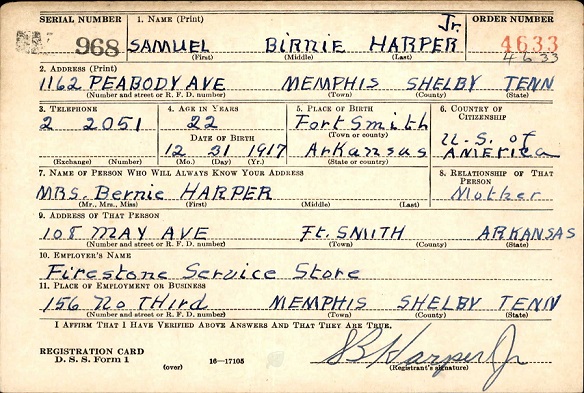 SERIAL NUMBER 1. NAME (Print) ORDER NUMBER
968 SAMUEL BIRNIE HARPER Jr. 4633
(First) (Middle) (Last) 4633
2. ADDRESS (Print)
1162 PEABODY AVE MEMPHIS SHELBY TENN
(Number and street or R. F. D. number) (Town) (County) (State)
3. TELEPHONE 4. AGE IN YEARS 5. PLACE OF BIRTH 6. COUNTRY OF CITIZENSHIP
2 2051 22 Fort Smith U.S. of AMERICA
DATE OF BIRTH (Town or county)
12 31 1917 Arkansas
(Exchange) (Number) (Mo.) (Day) (Yr.) (State or country)
7. NAME OF PERSON WHO WILL ALWAYS KNOW YOUR ADDRESS 8. RELATIONSHIP OF THAT PERSON
MRS. Bernie HARPER Mother
(Mr., Mrs., Miss) (First) (Middle) (Last)
9. ADDRESS OF THAT PERSON
108 MAY AVE Ft. SMITH ARKANSAS
(Number and street or R. F. D. number) (Town) (County) (State)
10. EMPLOYER'S NAME
Firestone Service Store
11. PLACE OF EMPLOYMENT OR BUSINESS
156 No THird MEMPHIS SHELBY TENN
(Number and street or R. F. D. number) (Town) (County) (State)
I AFFIRM THAT I HAVE VERIFIED ABOVE ANSWERS AND THAT THEY ARE TRUE.
S B Harper Jr
REGISTRATION CARD
D. S. S. Form 1 (over) 16—17105 (Registrant's signature)